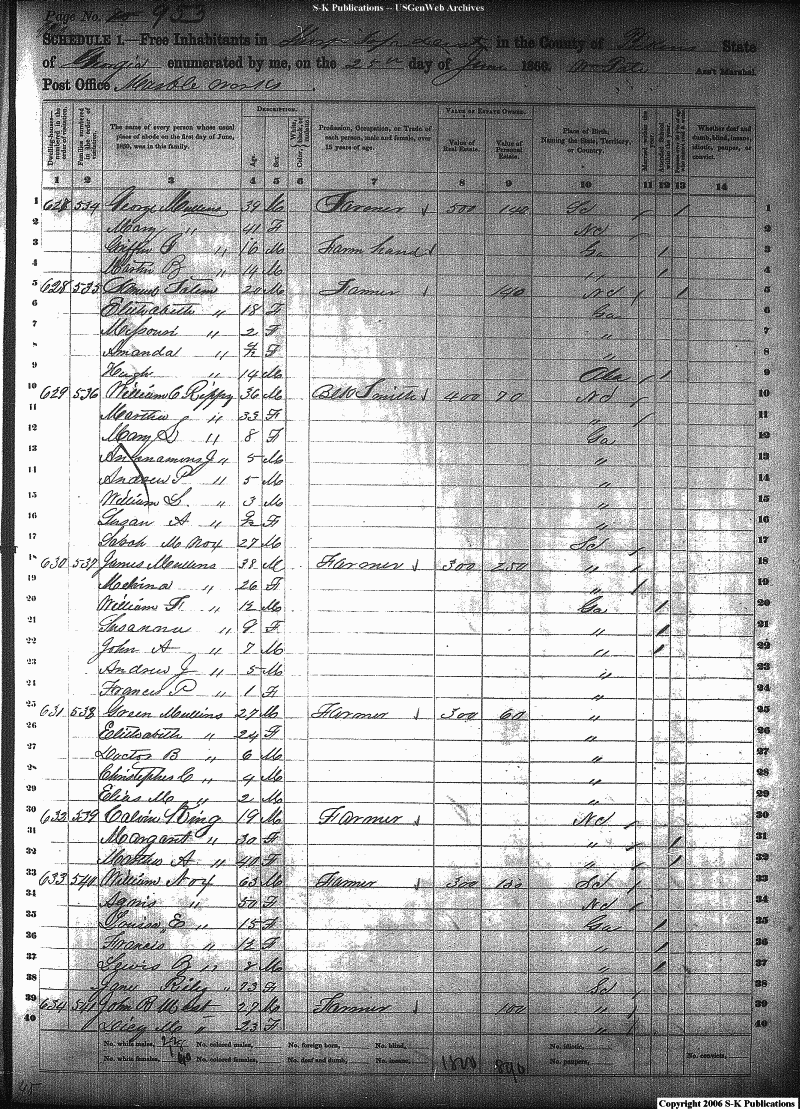 S-K Publications -- USGenWeb Archives
Page No. 953
SCHEDULE 1.—Free Inhabitants in in the County of Pickens State
of Georgia enumerated by me, on the 25th day of June 1860. Ass't Marshal.
Post Office Marble Works
DESCRIPTION. VALUE OF ESTATE OWNED.
Dwelling-houses—numbered in the order of visitation. Families numbered in the order of visitation. The name of every person whose usual place of abode on the first day of June, 1860, was in this family. Age. Sex. Color, White, black, or mulatto. Profession, Occupation, or Trade of each person, male and female, over 15 years of age. Value of Real Estate. Value of Personal Estate. Place of Birth, Naming the State, Territory, or Country. Married within the year. Attended School within the year. Whether deaf and dumb, blind, insane, idiotic, pauper, or convict.
1 2 3 4 5 6 7 8 9 10 11 12 13 14
1 534 George Mullins 39 M Farmer 500 140 Sc / / 1
2 Mary " 41 F Nc 2
3 Griffin " 16 M Farm hand Ga / 3
4 Martin B " 14 M " / 4
5 628 535 20 M Farmer 140 Nc / / 5
6 Elizabeth " 18 F Ga 6
7 Missouri " 2 F " 7
8 Amanda " F " 8
9 Hugh " 14 M / / 9
10 629 536 William C Rippy 36 M Blk Smith 400 70 Nc / 10
11 Martha " 33 F " / 11
12 Mary " 8 F Ga 12
13 " 5 M " 13
14 Andrew P " 5 M " 14
15 William S " 3 M " 15
16 Susan A " F " 16
17 27 M Sc / 17
18 630 537 James Mullins 38 M Farmer 300 250 " / 18
19 " 26 F " / 19
20 William " 12 M Ga / 20
21 Susanna " 9 F " / 21
22 John A " 7 M " / 22
23 Andrew J " 5 M " 23
24 Francis P " 1 F " 24
25 631 538 Green Mullins 27 M Farmer 300 60 " 25
26 Elizabeth " 24 F " 26
27 Doctor B " 6 M " 27
28 Christopher C " 4 M " 28
29 Elias M " 2 M " 29
30 632 539 Calvin King 19 M Farmer Nc / 30
31 Margaret " 30 F " / / 31
32 Martha A " 40 F " / / 32
33 633 540 William Noy 63 M Farmer 300 Sc / 33
34 " 50 F Nc / 34
35 Louisa E " 15 F Ga / 35
36 Francis " 12 F " / 36
37 Lewis B " 8 M " / 37
38 Jane Riley " 73 F Sc 38
39 634 541 John B 27 M Farmer 100 " / 39
40 " 23 F " / 40
No. white males, No. colored males, No. foreign born, No. blind, No. idiotic,
No. white females, No. colored females, No. deaf and dumb, No. insane, No. paupers, No. convicts,
Copyright 2006 S-K Publications